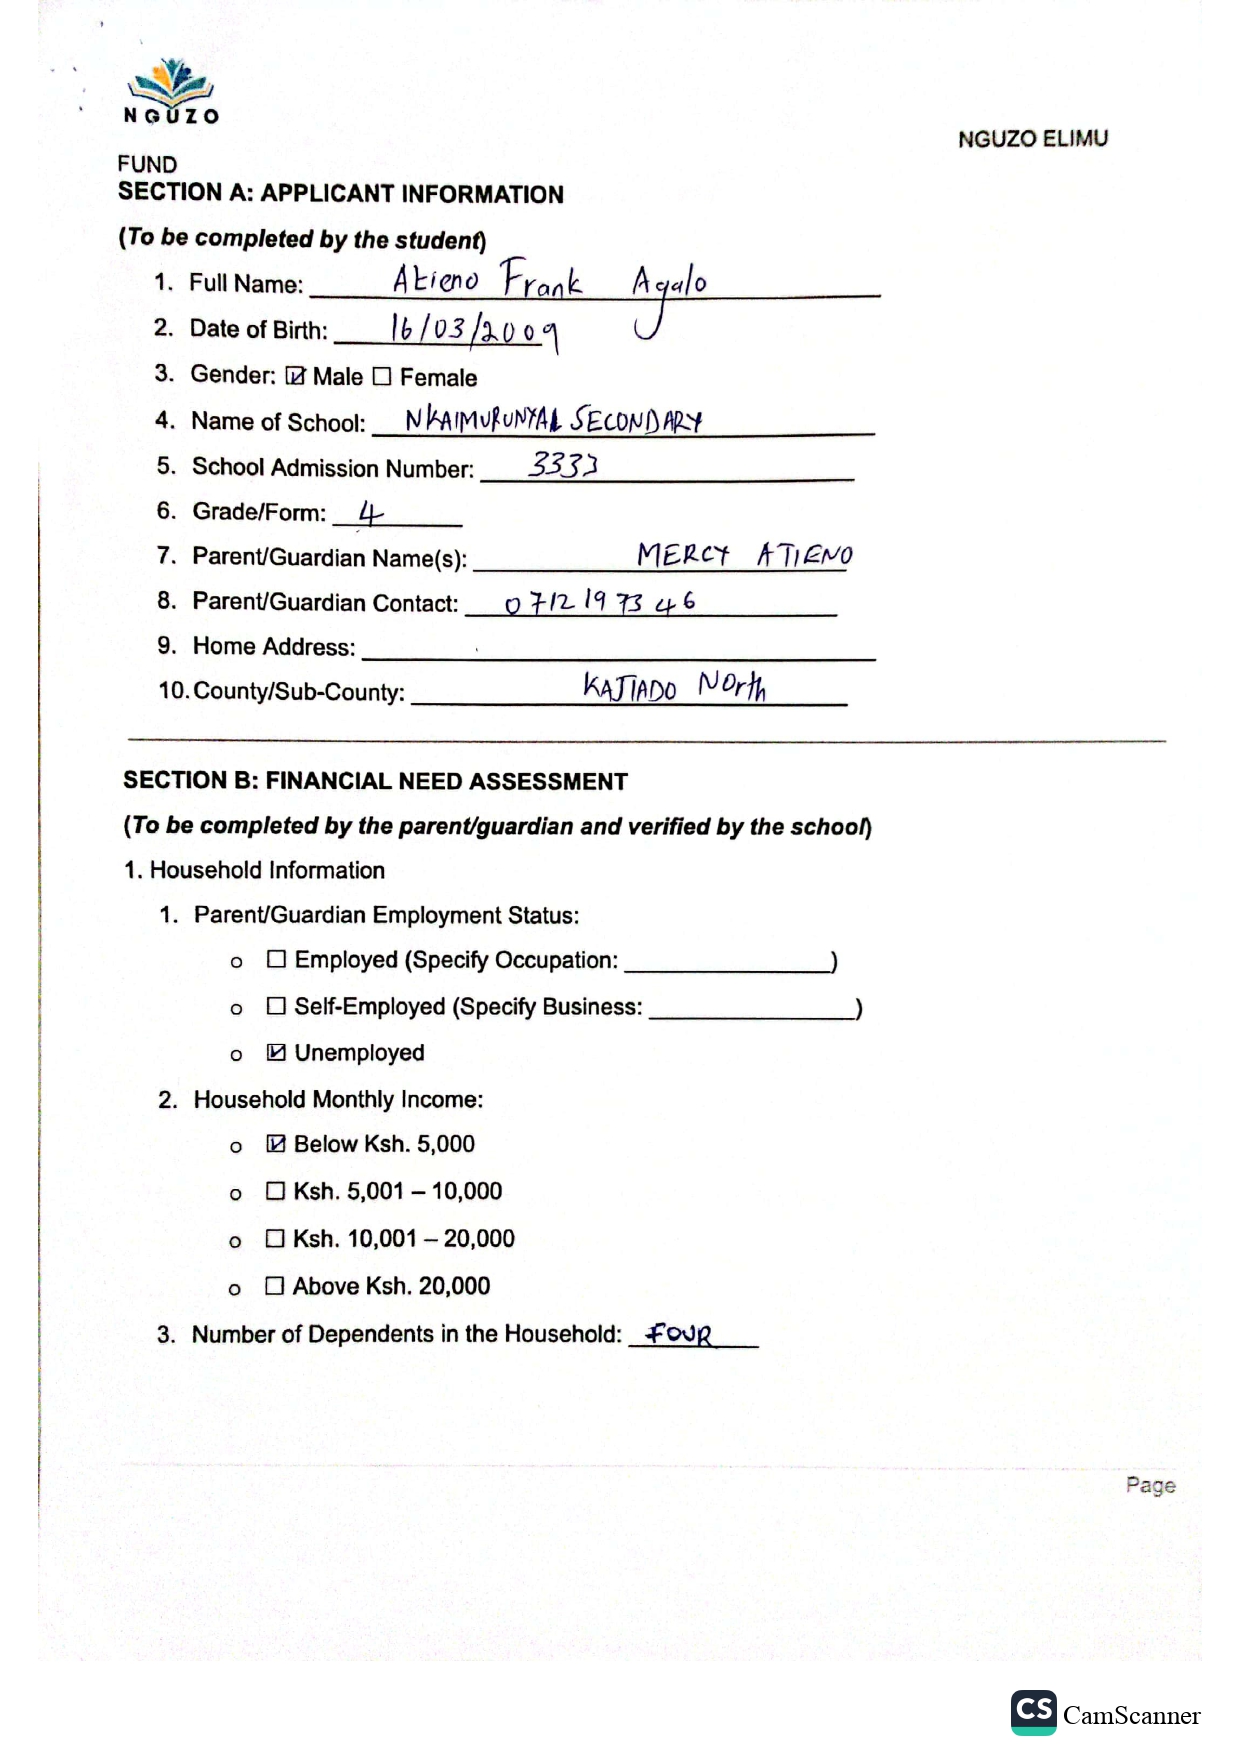 NGUZO
NGUZO ELIMU
FUND
SECTION A: APPLICANT INFORMATION
(To be completed by the student)
1. Full Name: Atieno Frank Agalo
2. Date of Birth: 16/03/2009
3. Gender: ☑ Male ☐ Female
4. Name of School: NKAIMURUNYAL SECONDARY
5. School Admission Number: 3333
6. Grade/Form: 4
7. Parent/Guardian Name(s): MERCY ATIENO
8. Parent/Guardian Contact: 0712 19 73 46
9. Home Address:
10. County/Sub-County: KAJIADO North
SECTION B: FINANCIAL NEED ASSESSMENT
(To be completed by the parent/guardian and verified by the school)
1. Household Information
1. Parent/Guardian Employment Status:
o ☐ Employed (Specify Occupation: _______________)
o ☐ Self-Employed (Specify Business: _______________)
o ☑ Unemployed
2. Household Monthly Income:
o ☑ Below Ksh. 5,000
o ☐ Ksh. 5,001 – 10,000
o ☐ Ksh. 10,001 – 20,000
o ☐ Above Ksh. 20,000
3. Number of Dependents in the Household: FOUR
Page
CS CamScanner